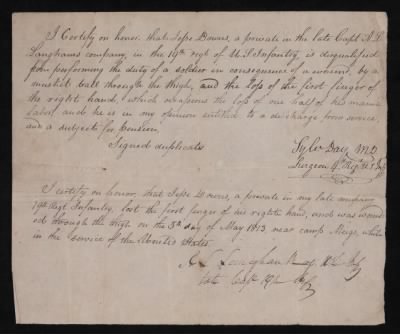 I Certify on honor, that Jesse Downs, a private in the late Capt A. L.
Langhams company, in the 19th regt of U. S. Infantry, is disqualified
from performing the duty of a soldier in consequence of a wound, by a
musket ball through the thigh, and the loss of the first finger of
the right hand, which occasions the loss of one half of his manu
labor and he is in my opinion entitled to a discharge from service
and a subject for pension.
Signed duplicates
Sylvs Day, M.D
Surgeon
I certify on honor, that Jesse Downs, a private in my late company
19th Regt Infantry, lost the first finger of his right hand, and was wound
ed through the thigh on the 5th day of May 1813 near camp Meigs, while
in the service of the United States.
A. L. Langham
late Capt 19th